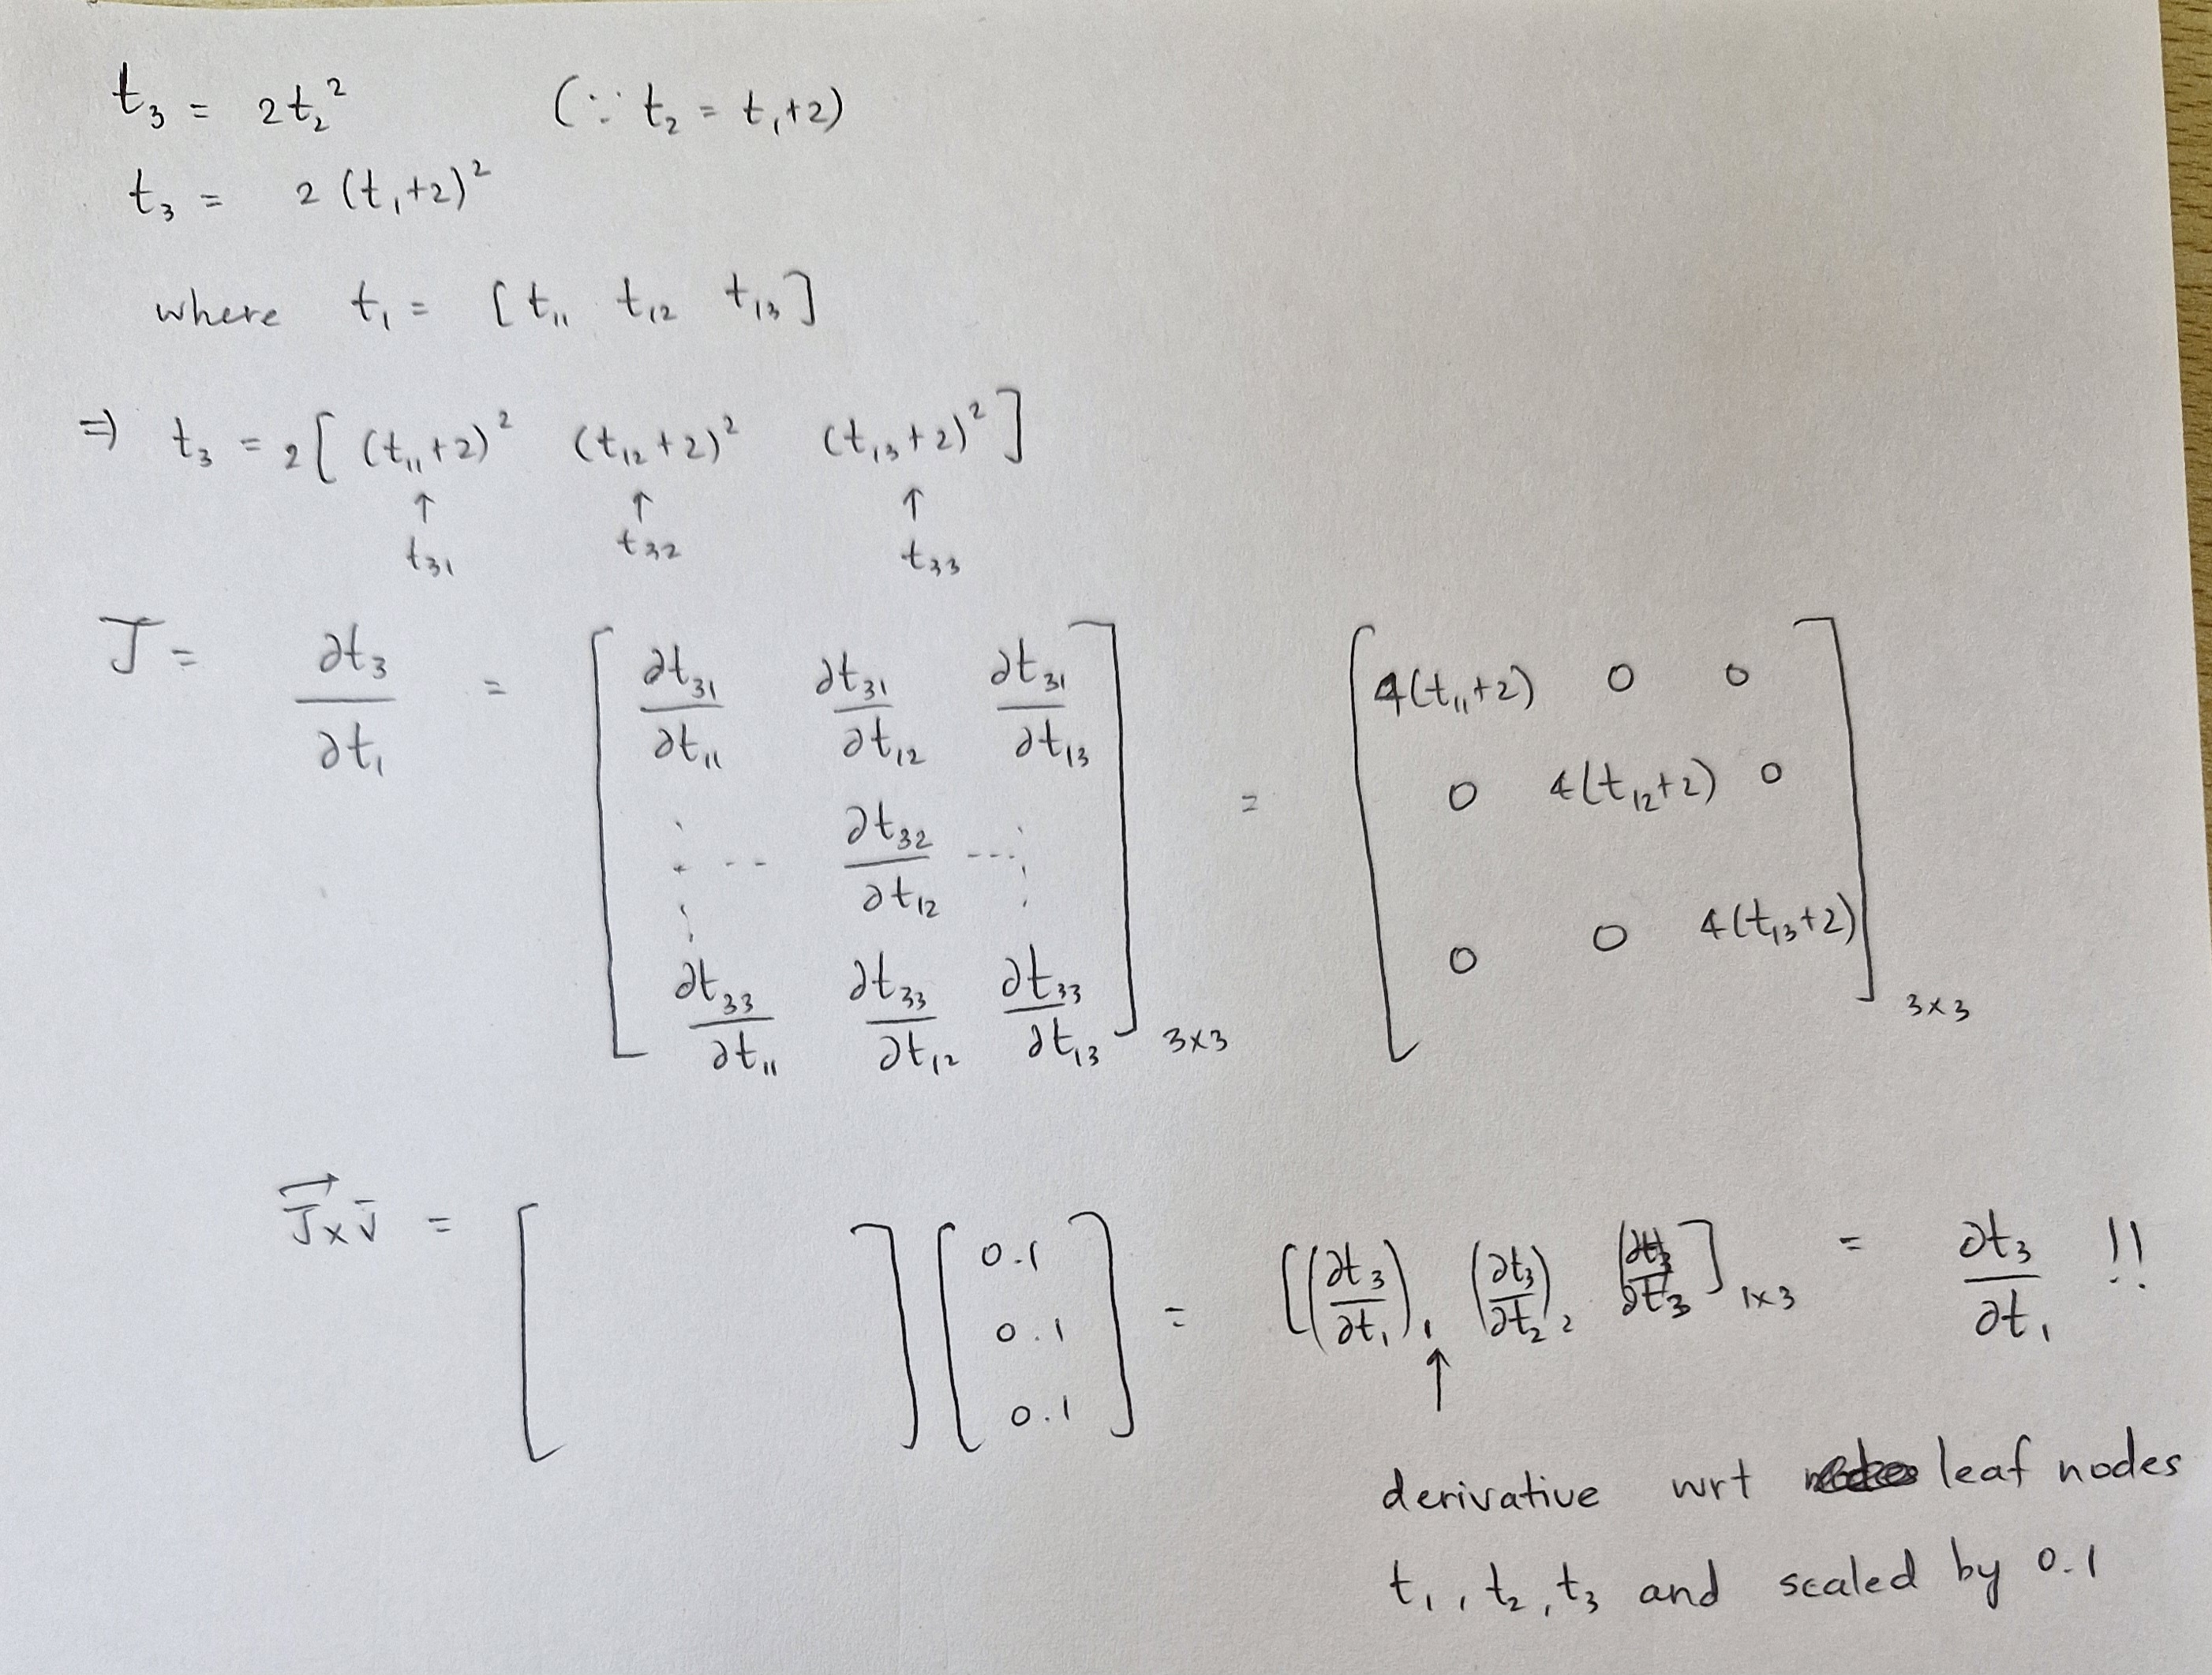 t₃ = 2t₂² (∵ t₂ = t₁+2)
t₃ = 2 (t₁+2)²
where t₁ = [ t₁₁ t₁₂ t₁₃ ]
⇒ t₃ = 2[ (t₁₁+2)² (t₁₂+2)² (t₁₃+2)² ]
↑ ↑ ↑
t₃₁ t₃₂ t₃₃
J = ∂t₃/∂t₁ = [ ∂t₃₁/∂t₁₁ ∂t₃₁/∂t₁₂ ∂t₃₁/∂t₁₃ ; ⋮ ... ∂t₃₂/∂t₁₂ ... ⋮ ; ∂t₃₃/∂t₁₁ ∂t₃₃/∂t₁₂ ∂t₃₃/∂t₁₃ ]3×3 = [ 4(t₁₁+2) 0 0 ; 0 4(t₁₂+2) 0 ; 0 0 4(t₁₃+2) ]3×3
J × v = [ ] [ 0.1 ; 0.1 ; 0.1 ] = [ (∂t₃/∂t₁)₁ (∂t₃/∂t₂)₂ (∂t₃/∂t₃) ]1×3 = ∂t₃/∂t₁ !!
↑
derivative wrt leaf nodes
t₁, t₂, t₃ and scaled by 0.1